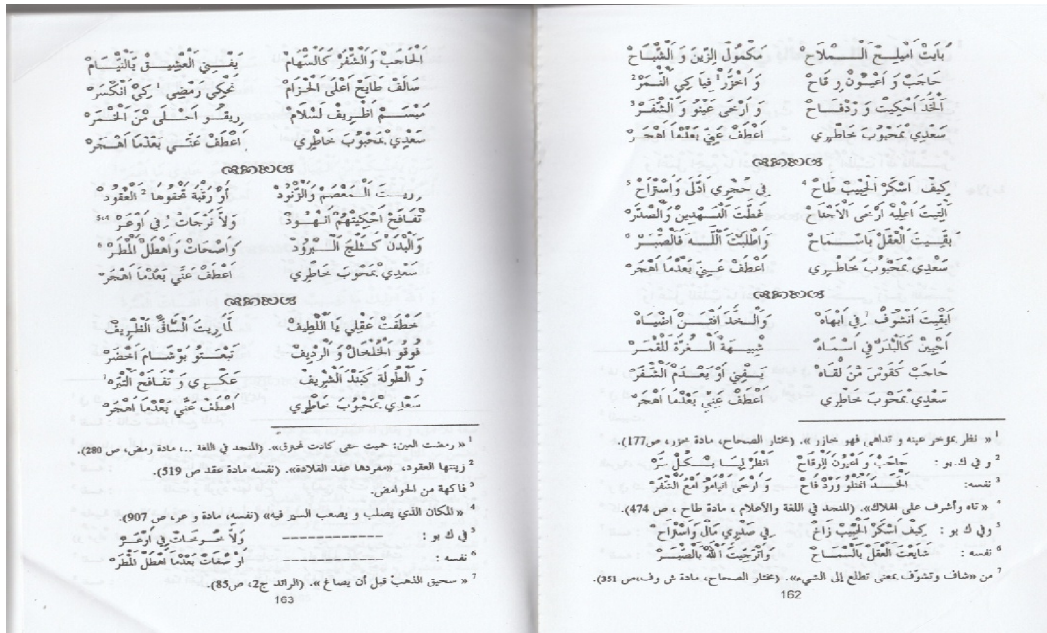 بَايَتْ امْلِيحْ الْـمْـلَاحْ مَكْمُولْ الزِّينْ وَ الشْبَاحْ
حَاجَبْ وَ اعْيُونْ رْقَاحْ وَ اخْزُرْ¹ فِيَا كِي النْمَرْ²
الْخَدْ احْكِيتْ وَرْدْ فَـاحْ وَ ارْخَى عَيْنُو وَ الشْفَرْ³
سَعْدِي بْمَحْبُوبْ خَاطْرِي اعْطَفْ عَنِّي بَعْدْمَا اهْجَرْ
كِيفْ اسْكَرْ الْحْبِيبْ طَاحْ⁴ فِي حُجْرِي ادَّلَى وَاسْتْرَاحْ⁵
الْقِيتْ اعْلِيهْ ارْخَى الْاجْنَاحْ غَطَّتْ النَّـهْدِينْ وَالصْدَرْ
بَقِّيتْ الْعْقَلْ بَاسْـمَـاحْ وَاطْلَبْتْ اللَّـهْ فَالصْبَرْ⁶
سَعْدِي بْمَحْبُوبْ خَاطْرِي اعْطَفْ عَنِّي بَعْدْمَا اهْجَرْ
ابْقِيتْ انْشُوفْ⁷ فِي ابْهَاهْ وَالْـخَدْ افْتَـنْ اضْيَاهْ
اجْبِينْ كَالْبْدَرْ فِي اسْمَاهْ شْبِيـهَةْ الْـغُرَّةْ لَلْقْمَرْ
حَاجَبْ كَقَوْسْ مَنْ لْقَاهْ يَـفْنِي اوْ يَعْدَمْ الشْفَرْ
سَعْدِي بْمَحْبُوبْ خَاطْرِي اعْطَفْ عَنِّي بَعْدْمَا اهْجَرْ
¹ « نظر بمؤخر عينه و تداهى فهو خازر ». (مختار الصحاح، مادة خزر، ص177).
² و في ك بو : حَاجَبْ وَ اعْيُونْ الرْقَاحْ انْظَرْ لِيَا بْـكُـلْ سَرْ
³ نفسه: الْخَـدْ افْتَلُّو وَرْدْ فَاحْ وَ ارْخَى انْيَامُو امْعَ الشْفَرْ
⁴ « تاه وأشرف على الهلاك». (المنجد في اللغة والأعلام ، مادة طاح ، ص 474).
⁵ وفي ك بو : كِيفْ اسْكَرْ الْحْبِيبْ زَاخْ فِي صَدْرِي مَالْ وَاسْتْرَاحْ
⁶ نفسه: شَايَعْتْ الْعْقَلْ بَالسْـمَـاحْ وَاتْرَجِّيتْ اللَّهْ بَالصْـبَـرْ
⁷ من «شاف وتشوّف بمعنى تطلع إلى الشيء». (مختار الصحاح، مادة ش وف،ص 351).
162
الْحَاجَبْ وَالشْفُرْ كَالسْهَامْ يَـفْـنِي الْعْشِيقْ بَالنْيَـامْ
سَالَفْ طَايَحْ اعْلَى الْحْزَامْ نَحْكِي رَمْضِي¹ رَكِّي انْكْسَرْ
مَبْسَـمْ اظْرِيفْ لَسْلَامْ رِيقُو احْلَى مْنْ الْخْمَرْ
سَعْدِي بْمَحْبُوبْ خَاطْرِي اعْطَفْ عَنِّي بَعْدْمَا اهْجَرْ
رِيـتْ الْـمَعْصَمْ وَالزْنُودْ اوْ رَقْبَةْ تْحَفُّوهَا² الْعْقُودْ
تَفَّافَحْ احْكِيتْهُمْ انْـهُـودْ وَلَا نَرْجَاتْ³ فِي اوْعَـرْ ⁵،⁴
وَالْبْدَنْ كَـثَلْجْ الْـبْرُودْ وَاضْحَاتْ وَاهْطَلْ الْمْطَرْ⁶
سَعْدِي بْمَحْبُوبْ خَاطْرِي اعْطَفْ عَنِّي بَعْدْمَا اهْجَرْ
خَطْفَتْ عَقْلِي يَا اللَّطِيفْ لَمَّا رِيتْ السَّاقْ الظْرِيفْ
فُوقُو الْخُلْخَالْ وَ الرْدِيفْ تَبْعَـتُو بَوْشَـامْ اخْضَرْ
وَ الطُّولَةْ كَبَنْدْ الشْرِيفْ عَكْـرِي وَ تْفَافَحْ التْبَرْ⁷
سَعْدِي بْمَحْبُوبْ خَاطْرِي اعْطَفْ عَنِّي بَعْدْمَا اهْجَرْ
¹ « رمضت العين: حميت حتى كادت تحترق». (المنجد في اللغة ..، مادة رمض، ص 280).
² زينتها العقود، «مفردها عقد القلادة». (نفسه مادة عقد ص 519).
³ فاكهة من الحوامض.
⁴ «المكان الذي يصلب و يصعب السير فيه» (نفسه، مادة و عر، ص 907).
⁵ في ك بو : ---------------- وَلَا ... فِي اوْعَـرْ
⁶ نفسه : ---------------- اوْ ... بَعْدْمَا اهْطَلْ الْمْطَرْ
⁷ « سحيق الذهب قبل أن يصاغ ». (الرائد ج2، ص85).
163